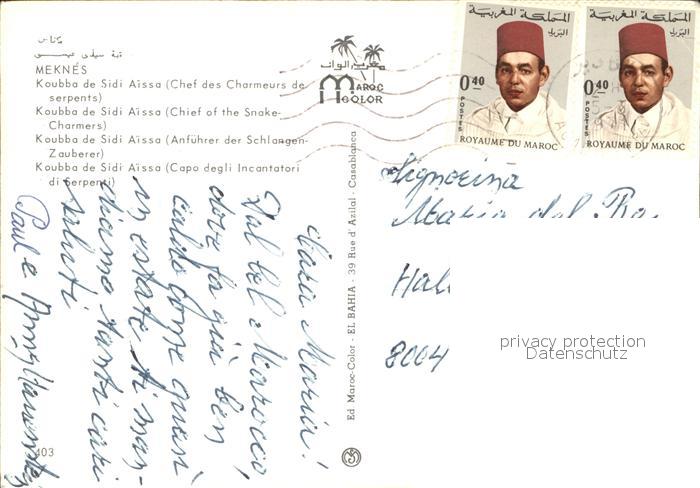 مكناس
قبة سيدي عيسى
MEKNÉS
Koubba de Sidi Aïssa (Chef des Charmeurs de
serpents)
Koubba de Sidi Aïssa (Chief of the Snake-
Charmers)
Koubba de Sidi Aïssa (Anführer der Schlangen-
Zauberer)
Koubba de Sidi Aïssa (Capo degli Incantatori
di Serpenti)
MAROC
COLOR
المملكة المغربية
البريد
0,40
POSTES
ROYAUME DU MAROC
المملكة المغربية
البريد
0,40
POSTES
ROYAUME DU MAROC
Cara Maria!
Dal bel Marocco,
dove fa già ben
caldo come quasi
in estate ti man-
diamo tanti cari
saluti
Paul e
Ed. Maroc-Color - EL BAHIA - 39 Rue d'Azilal - Casablanca
Signorina
Maria del
8004
privacy protection
Datenschutz
403